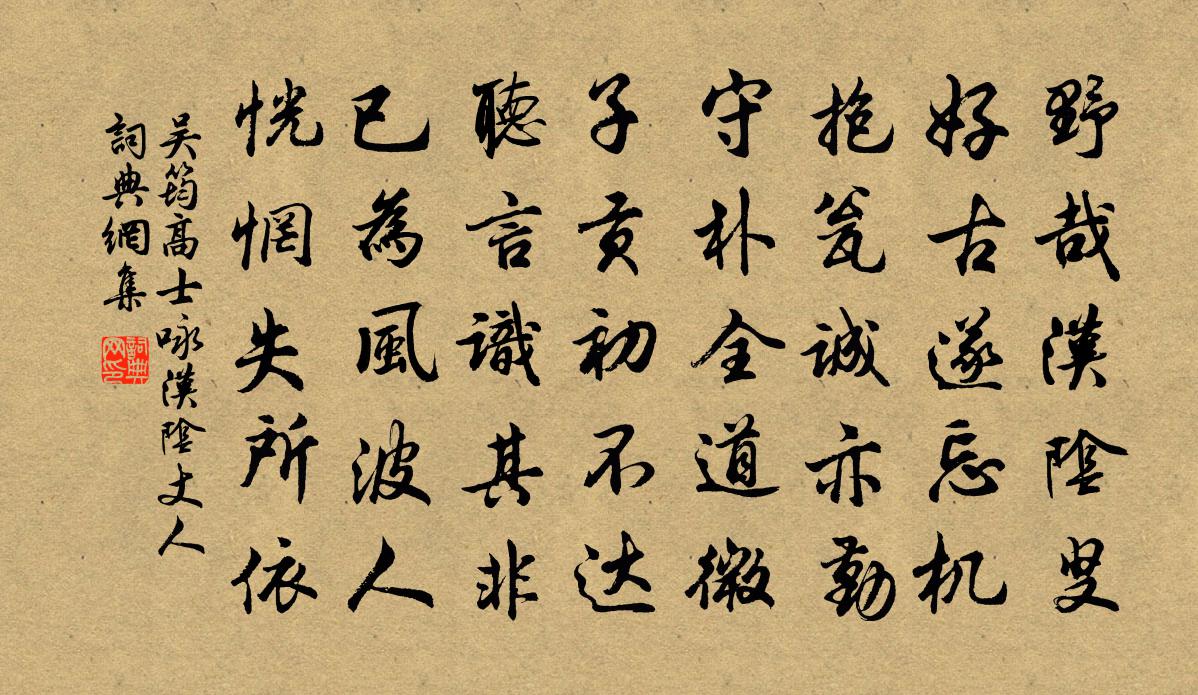 野哉漢陰叟
好古遂忘机
抱瓮誠亦勤
守朴全道微
子贡初不达
聴言識其非
已為風波人
恍惘失所依
吴筠高士咏漢陰丈人
詞典網集
詞典网印